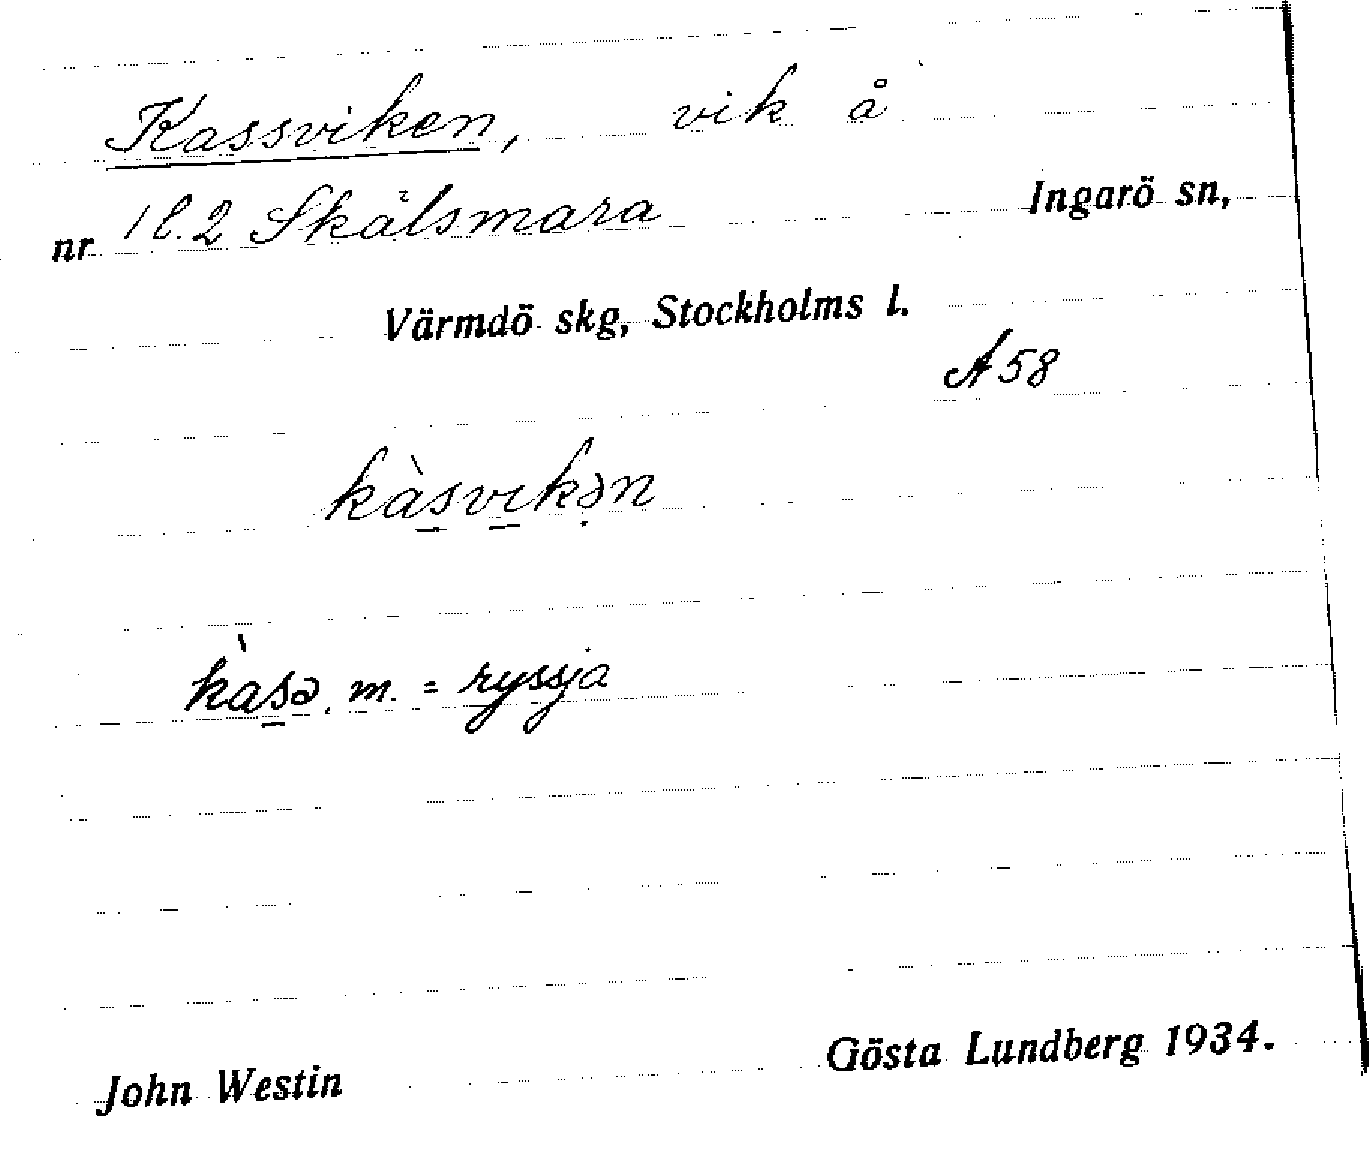 Kassviken, vik å
nr 1 l. 2 Skälsmara Ingarö sn,
Värmdö skg, Stockholms l.
A 58
kàs̲vi̲kə̣n
kàs̲ə m. = ryssja
John Westin Gösta Lundberg 1934.